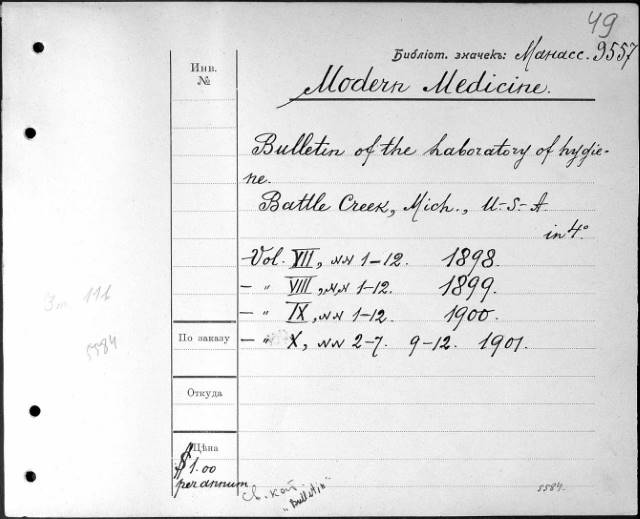 49
Библіот. значекъ: Манасс. 9557
Инв.
№
Modern Medicine.
Bulletin of the Laboratory of hygie-
ne.
Battle Creek, Mich., U-S-A
in 4°
Vol. VII, NN 1-12. 1898.
- " VIII, NN 1-12. 1899.
- " IX, NN 1-12. 1900.
- " X, NN 2-7. 9-12. 1901.
116
5584
По заказу
Откуда
Цѣна
$1.00
per annum
Св. кат.
"Bulletin"
5584.